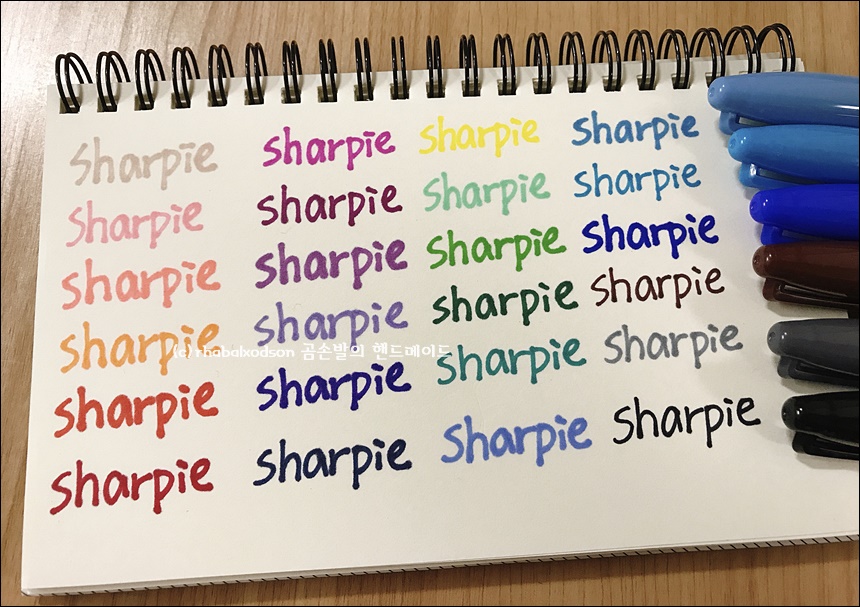 sharpie sharpie sharpie sharpie
sharpie sharpie sharpie sharpie
sharpie sharpie sharpie sharpie
sharpie sharpie sharpie sharpie
(c) rhabakodson 곰손발의 핸드메이드
sharpie sharpie sharpie sharpie
sharpie sharpie sharpie sharpie